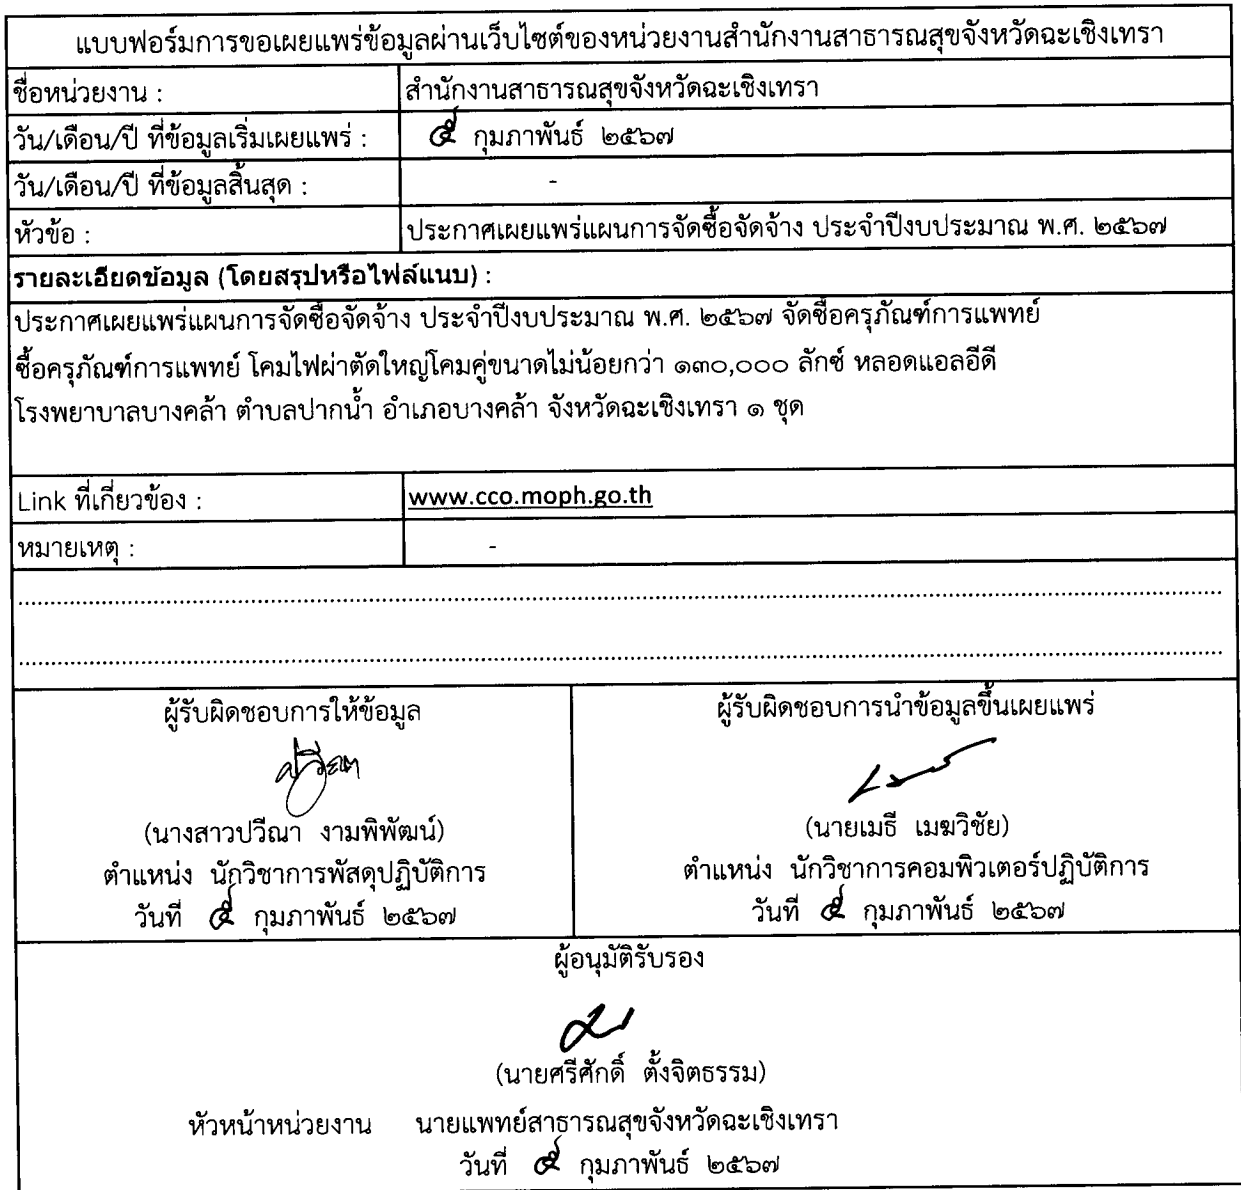 แบบฟอร์มการขอเผยแพร่ข้อมูลผ่านเว็บไซต์ของหน่วยงานสำนักงานสาธารณสุขจังหวัดฉะเชิงเทรา
ชื่อหน่วยงาน : สำนักงานสาธารณสุขจังหวัดฉะเชิงเทรา
วัน/เดือน/ปี ที่ข้อมูลเริ่มเผยแพร่ : ๕ กุมภาพันธ์ ๒๕๖๗
วัน/เดือน/ปี ที่ข้อมูลสิ้นสุด : -
หัวข้อ : ประกาศเผยแพร่แผนการจัดซื้อจัดจ้าง ประจำปีงบประมาณ พ.ศ. ๒๕๖๗
รายละเอียดข้อมูล (โดยสรุปหรือไฟล์แนบ) :
ประกาศเผยแพร่แผนการจัดซื้อจัดจ้าง ประจำปีงบประมาณ พ.ศ. ๒๕๖๗ จัดซื้อครุภัณฑ์การแพทย์
ซื้อครุภัณฑ์การแพทย์ โคมไฟผ่าตัดใหญ่โคมคู่ขนาดไม่น้อยกว่า ๑๓๐,๐๐๐ ลักซ์ หลอดแอลอีดี
โรงพยาบาลบางคล้า ตำบลปากน้ำ อำเภอบางคล้า จังหวัดฉะเชิงเทรา ๑ ชุด
Link ที่เกี่ยวข้อง : www.cco.moph.go.th
หมายเหตุ : -
ผู้รับผิดชอบการให้ข้อมูล
ปวีณา
(นางสาวปวีณา งามพิพัฒน์)
ตำแหน่ง นักวิชาการพัสดุปฏิบัติการ
วันที่ ๕ กุมภาพันธ์ ๒๕๖๗
ผู้รับผิดชอบการนำข้อมูลขึ้นเผยแพร่
(นายเมธี เมฆวิชัย)
ตำแหน่ง นักวิชาการคอมพิวเตอร์ปฏิบัติการ
วันที่ ๕ กุมภาพันธ์ ๒๕๖๗
ผู้อนุมัติรับรอง
(นายศรีศักดิ์ ตั้งจิตธรรม)
หัวหน้าหน่วยงาน นายแพทย์สาธารณสุขจังหวัดฉะเชิงเทรา
วันที่ ๕ กุมภาพันธ์ ๒๕๖๗